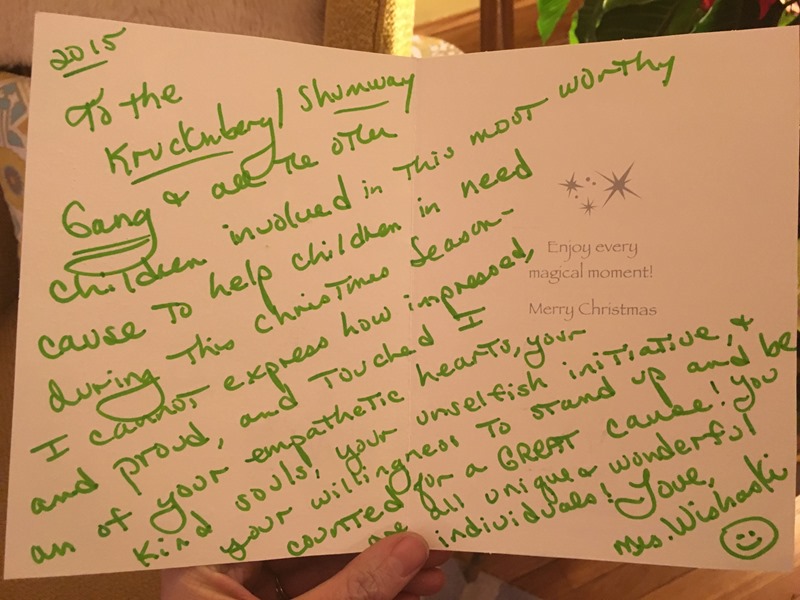 2015
To the
Kruckenberg/Shumway
Gang & all the other
children involved in this most worthy
cause to help children in need
during this Christmas Season-
I cannot express how impressed,
and proud, and touched I
am of your empathetic hearts, your
kind souls, your unselfish initiative, &
your willingness to stand up and be
counted for a GREAT cause! You
are all unique & wonderful
individuals! Love,
Mrs. Wishaski
Enjoy every
magical moment!
Merry Christmas